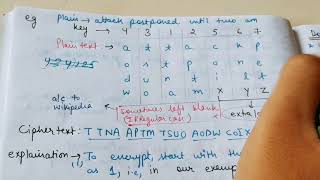 eg Plain → attack postponed until two am
key → 4 3 1 2 5 6 7
Plain text a t t a c k p
o s t p o n e
d u n t i l t
w o a m x y z
a/c to wikipedia
Sometimes left blank (Irregular case)
extra
Cipher text: TTNA APTM TSUO AODW COIX
explaination → To encrypt, start with the
(1) as 1, i.e, in our exam